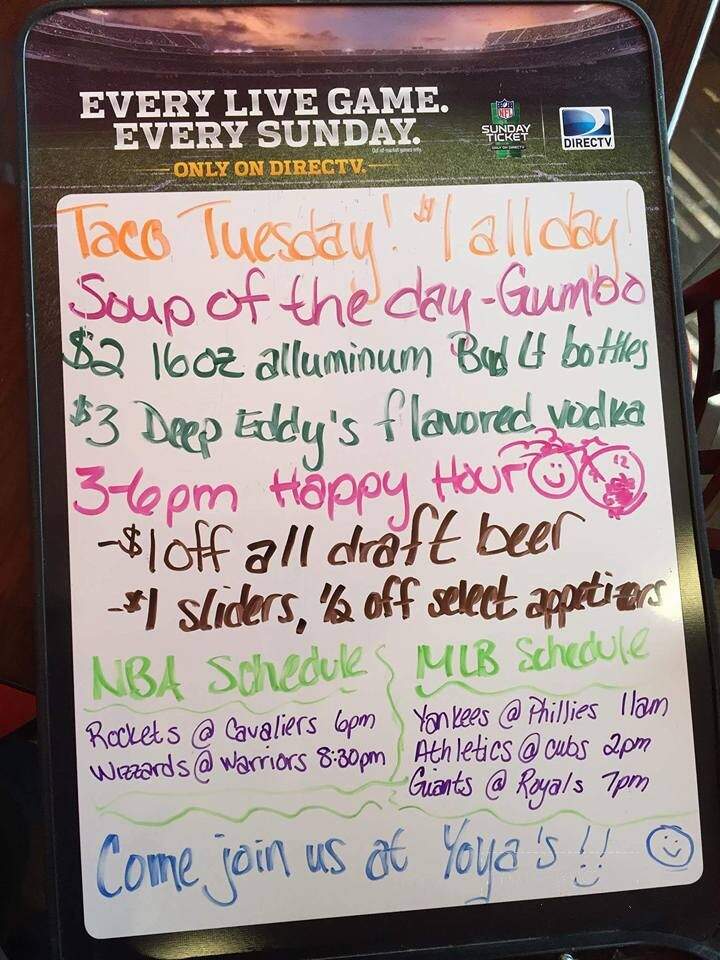 EVERY LIVE GAME.
EVERY SUNDAY.
Out of market games only.
ONLY ON DIRECTV.
NFL
SUNDAY
TICKET
ONLY ON DIRECTV
DIRECTV
Taco Tuesday! $1 all day!
Soup of the day - Gumbo
$2 16oz alluminum Bud Lt bottles
$3 Deep Eddy's flavored vodka
3-6pm Happy Hour
-$1 off all draft beer
-$1 sliders, 1/2 off select appetizers
NBA Schedule
Rockets @ Cavaliers 6pm
Wizzards @ Warriors 8:30pm
MLB Schedule
Yankees @ Phillies 11am
Athletics @ cubs 2pm
Giants @ Royals 7pm
Come join us at Yoya's!!